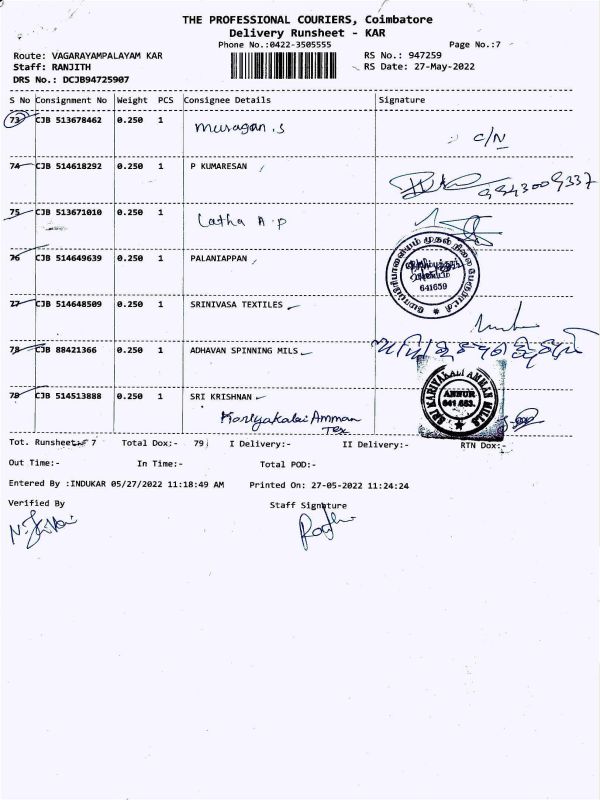 THE PROFESSIONAL COURIERS, Coimbatore
Delivery Runsheet - KAR
Phone No.:0422-3505555
Page No.:7
Route: VAGARAYAMPALAYAM KAR
RS No.: 947259
Staff: RANJITH
RS Date: 27-May-2022
DRS No.: DCJB94725907
S No Consignment No Weight PCS Consignee Details Signature
73 CJB 513678462 0.250 1 Murugan.S C/N
74 CJB 514618292 0.250 1 P KUMARESAN 9943009337
75 CJB 513671010 0.250 1 Latha A.P
76 CJB 514649639 0.250 1 PALANIAPPAN
641659
77 CJB 514648509 0.250 1 SRINIVASA TEXTILES
78 CJB 88421366 0.250 1 ADHAVAN SPINNING MILS
79 CJB 514513888 0.250 1 SRI KRISHNAN
Kariyakalai Amman
Tex
SRI KARIYAKALI AMMAN MILLS
ANNUR
641 653.
Tot. Runsheet:- 7 Total Dox:- 79 I Delivery:- II Delivery:- RTN Dox:-
Out Time:- In Time:- Total POD:-
Entered By :INDUKAR 05/27/2022 11:18:49 AM Printed On: 27-05-2022 11:24:24
Verified By Staff Signature